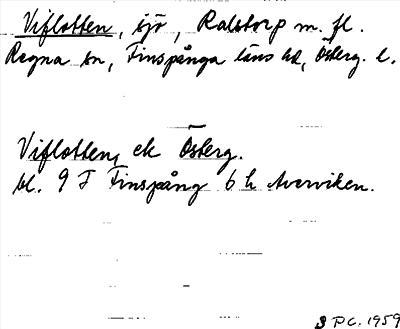 Viflotten, sjö, Ralstorp m. fl.
Regna sn, Finspånga läns hd, Österg. l.
Viflotten, ek Österg.
bl. 9 F Finspång 6 h Averviken.
P C. 1959